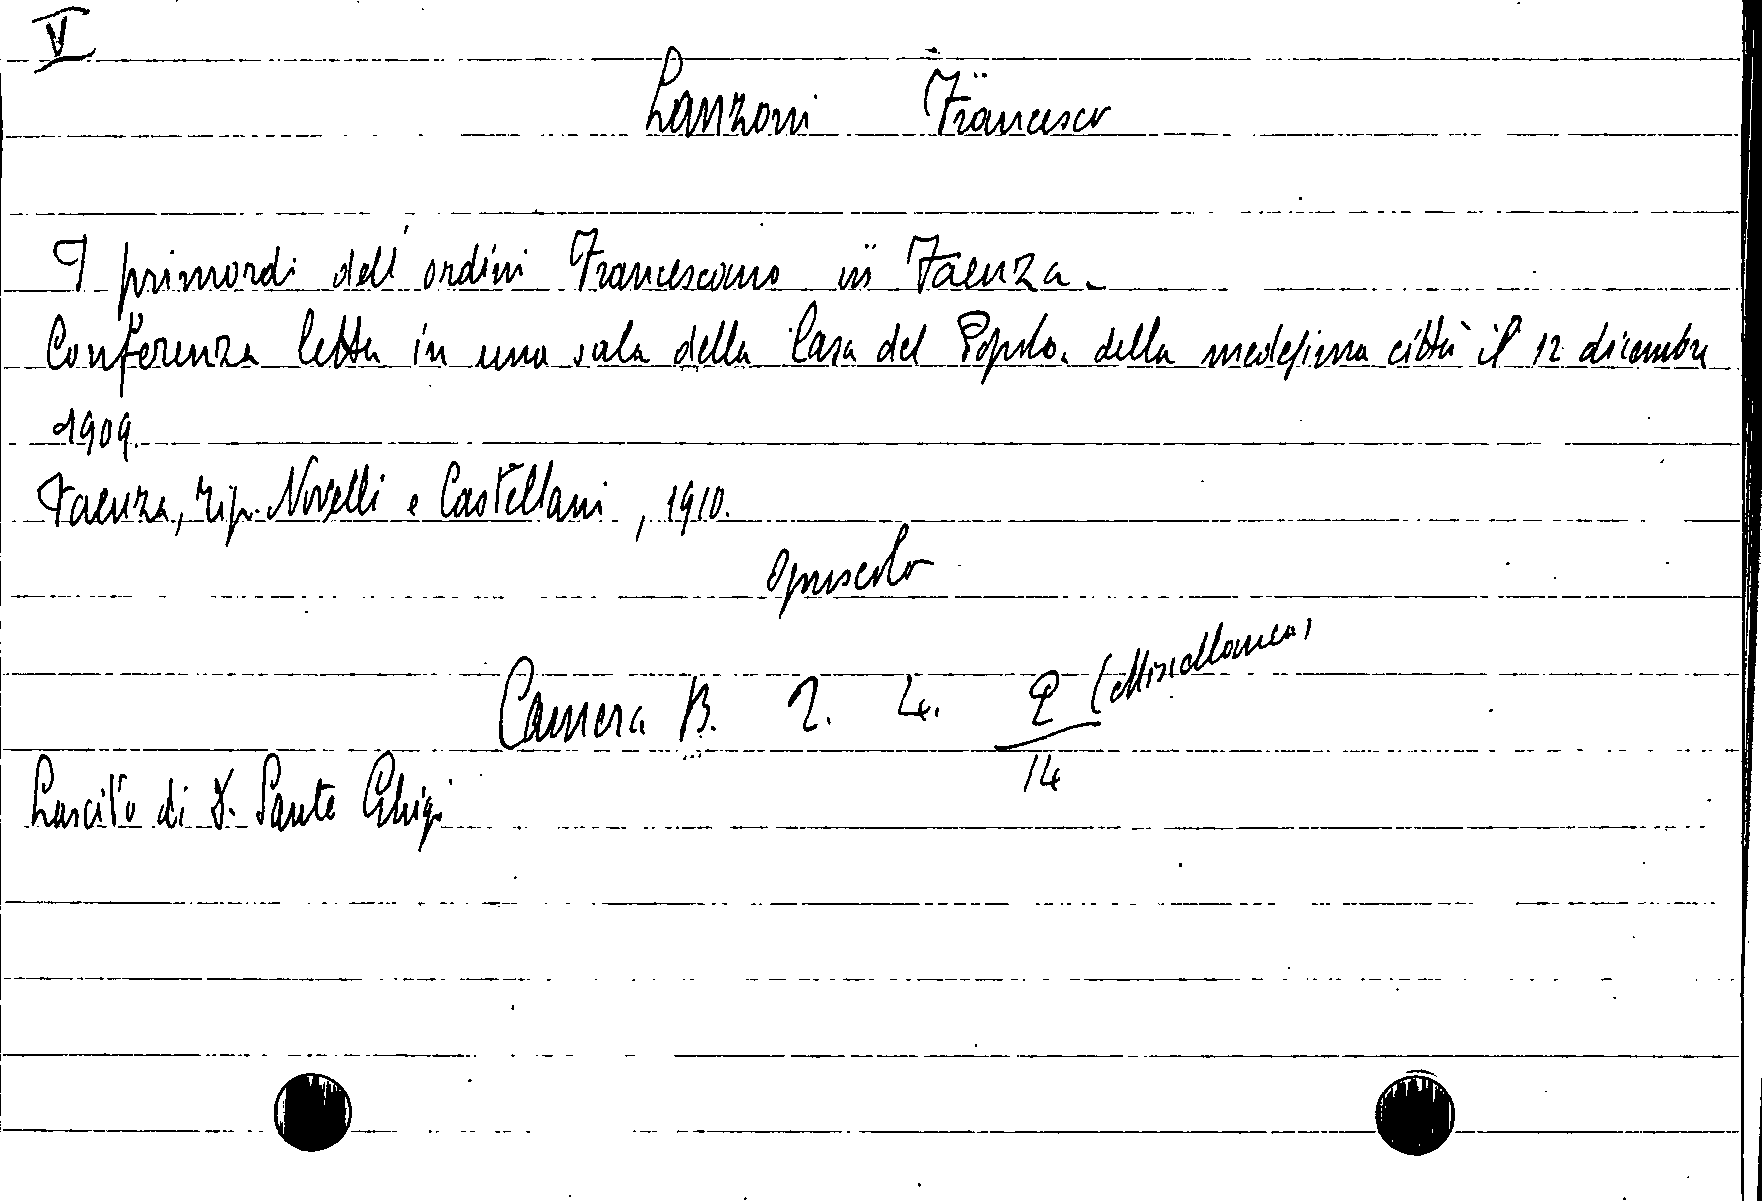 V
Lanzoni Francesco
I primordi dell'ordini Francescano in Faenza.
Conferenza letta in una sala della Casa del Popolo della medesima città il 12 dicembre
1909.
Faenza, Tip. Novelli e Castellani, 1910.
opuscolo
Camera B. 2. 4. 2 (Miscellanea)
14
Lascito di D. Sante Ghigi